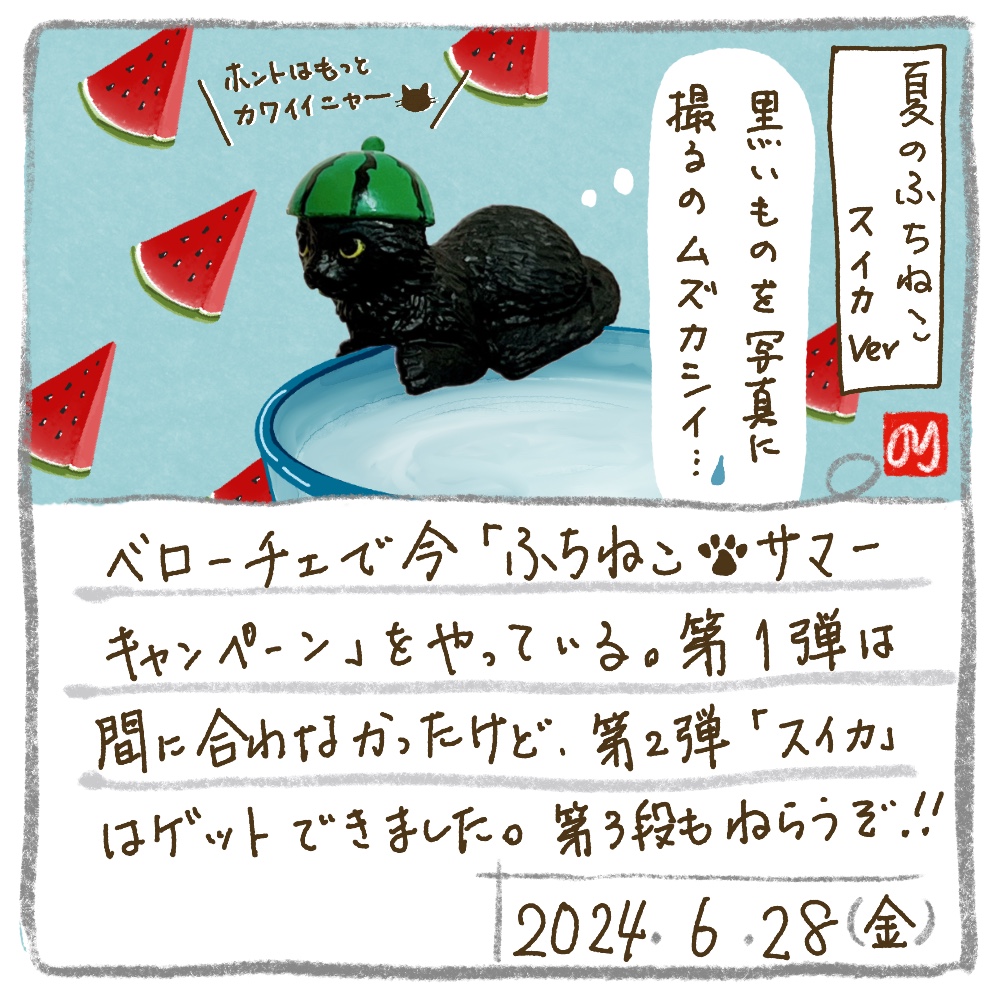 夏のふちねこ
スイカ ver
黒いものを写真に
撮るのムズカシイ…
ホントはもっと
カワイイニャー
ベローチェで今「ふちねこ サマー
キャンペーン」をやっている。第1弾は
間に合わなかったけど、第2弾「スイカ」
はゲットできました。第3段もねらうぞ!!
2024.6.28(金)